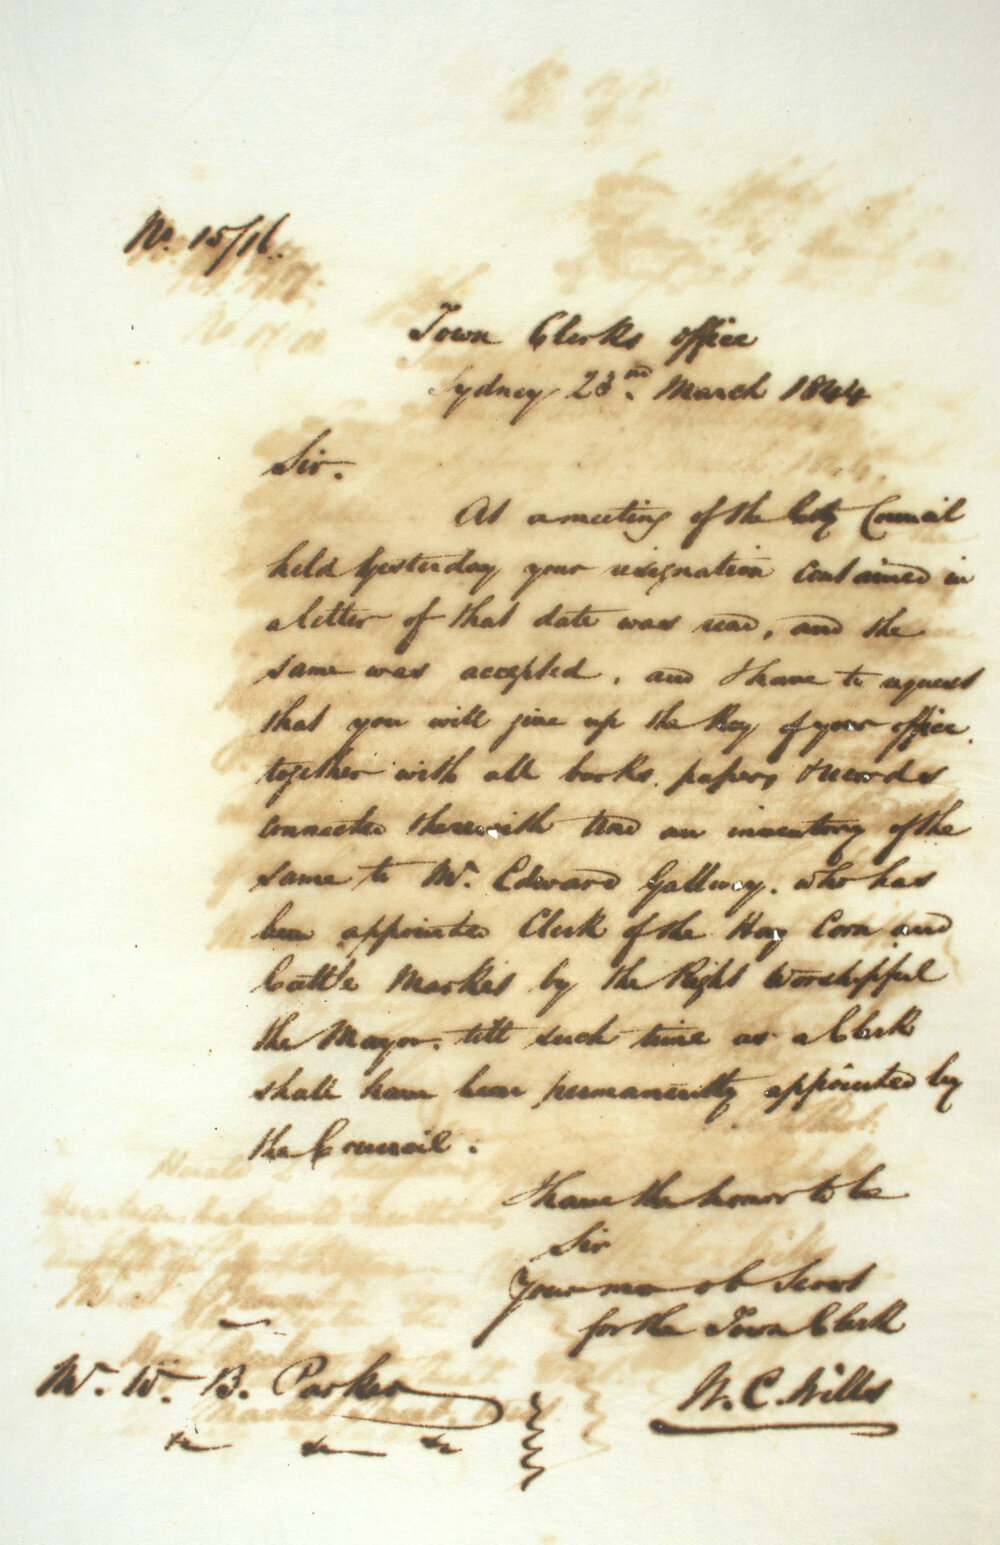 No. 15/16.
Town Clerks Office
Sydney 23rd. March 1844
Sir.
At a meeting of the City Council
held Yesterday your resignation contained in
a letter of that date was read, and the
same was accepted, and I have to request
that you will give up the Key of your office,
together with all books, papers & records
connected therewith and an inventory of the
same to Mr. Edward Gallwey, who has
been appointed Clerk of the Hay Corn and
Cattle Market by the Right Worshipful
the Mayor, till such time as a Clerk
shall have been permanently appointed by
the Council.
I have the honor to be
Sir
Your mo ob Servt
for the Town Clerk
W. C. Wills
Mr. W. B. Parker
&c &c &c